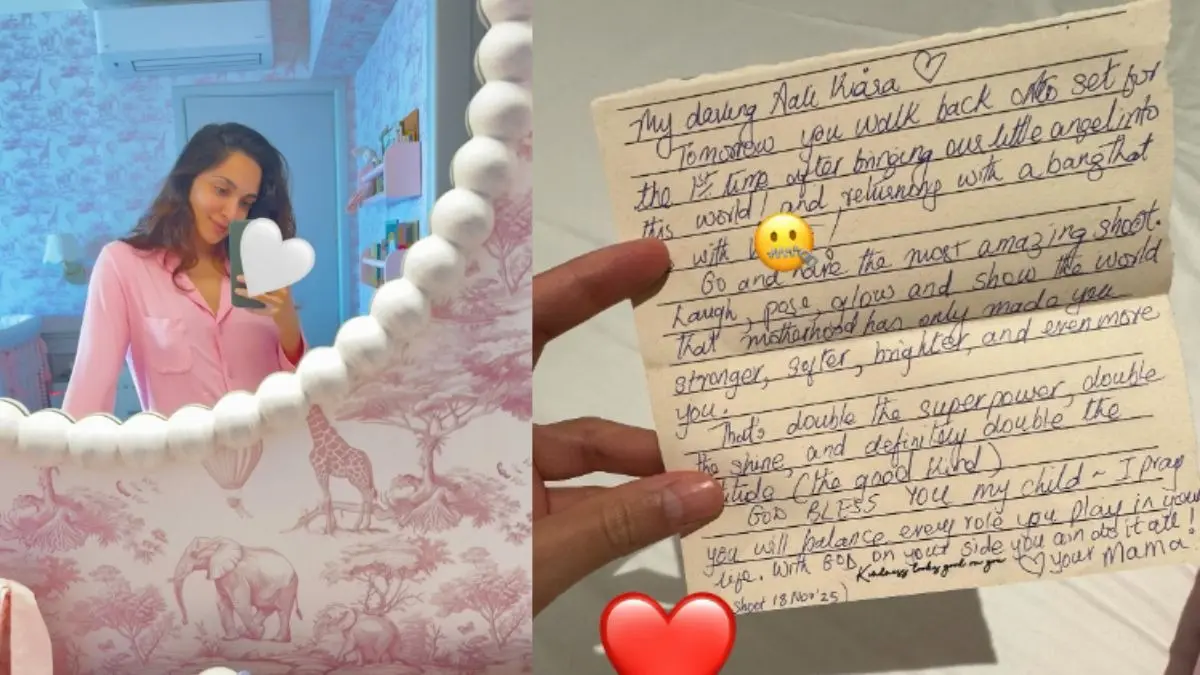 My darling Aale Kiara
Tomorrow you walk back onto set for
the 1st time after bringing our little angel into
this world! and returning with a bang that
with !
Go and have the most amazing shoot.
Laugh, pose, glow and show the world
that motherhood has only made you
stronger, softer, brighter, and even more
you.
That's double the superpower, double
the shine, and definitely double the
(the good kind)
GOD BLESS YOU my child ~ I pray
you will balance every role you play in your
life. With GOD on your side you can do it all!
Kindness looks good on you
your Mama.
shoot 18 Nov'25)